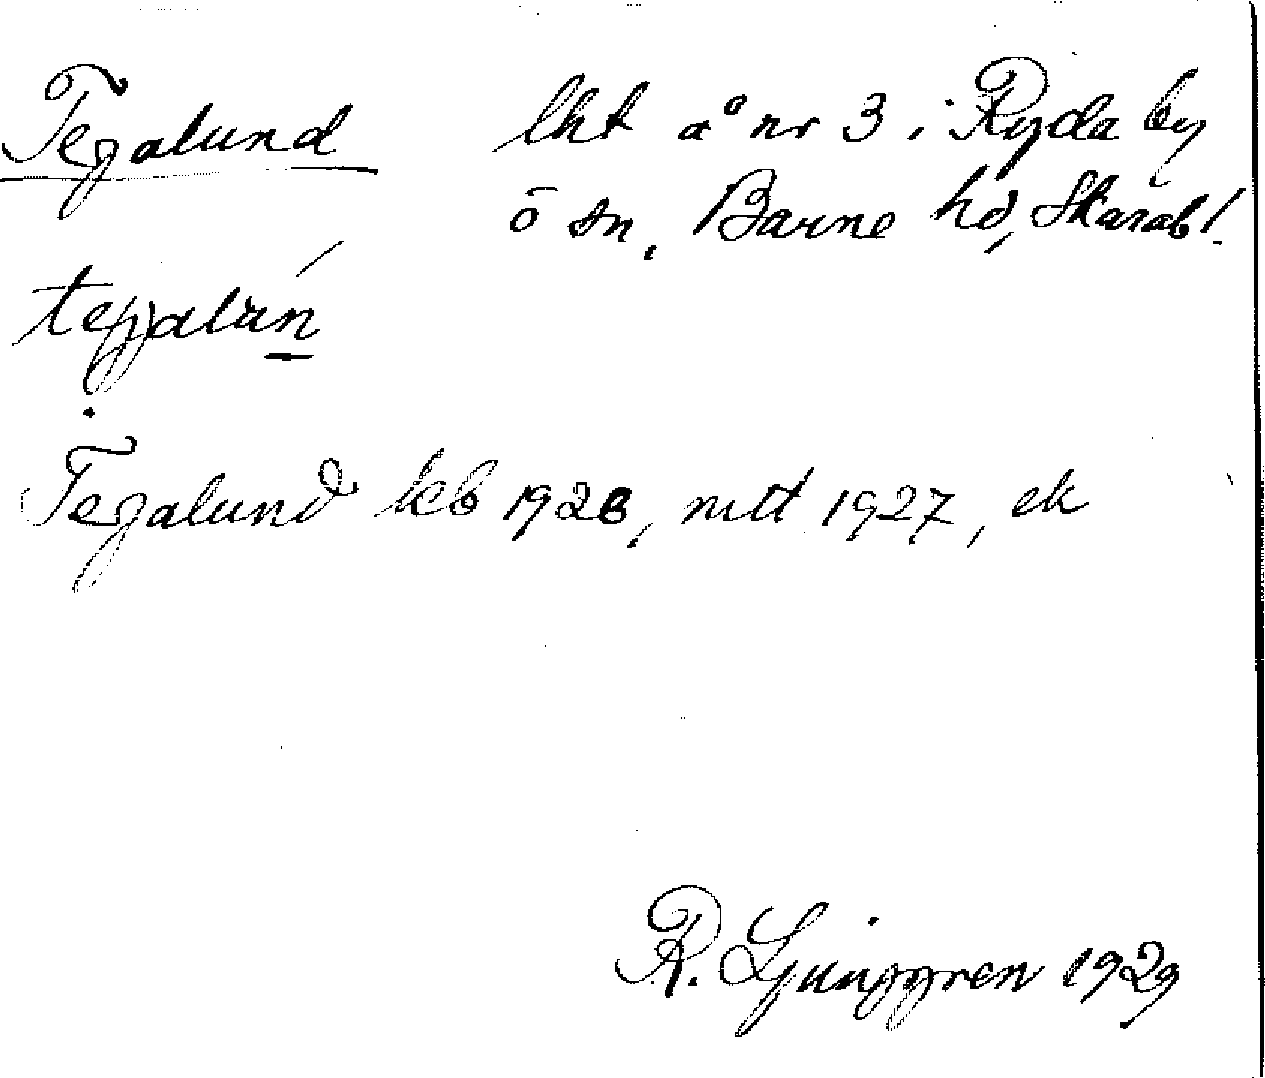 Tegalund lht å nr 3 i Ryda by
o sn, Barne hd, Skarab l.
tegalun
Tegalund leb 1928, mtt 1927, ek
R. Ljunggren 1929